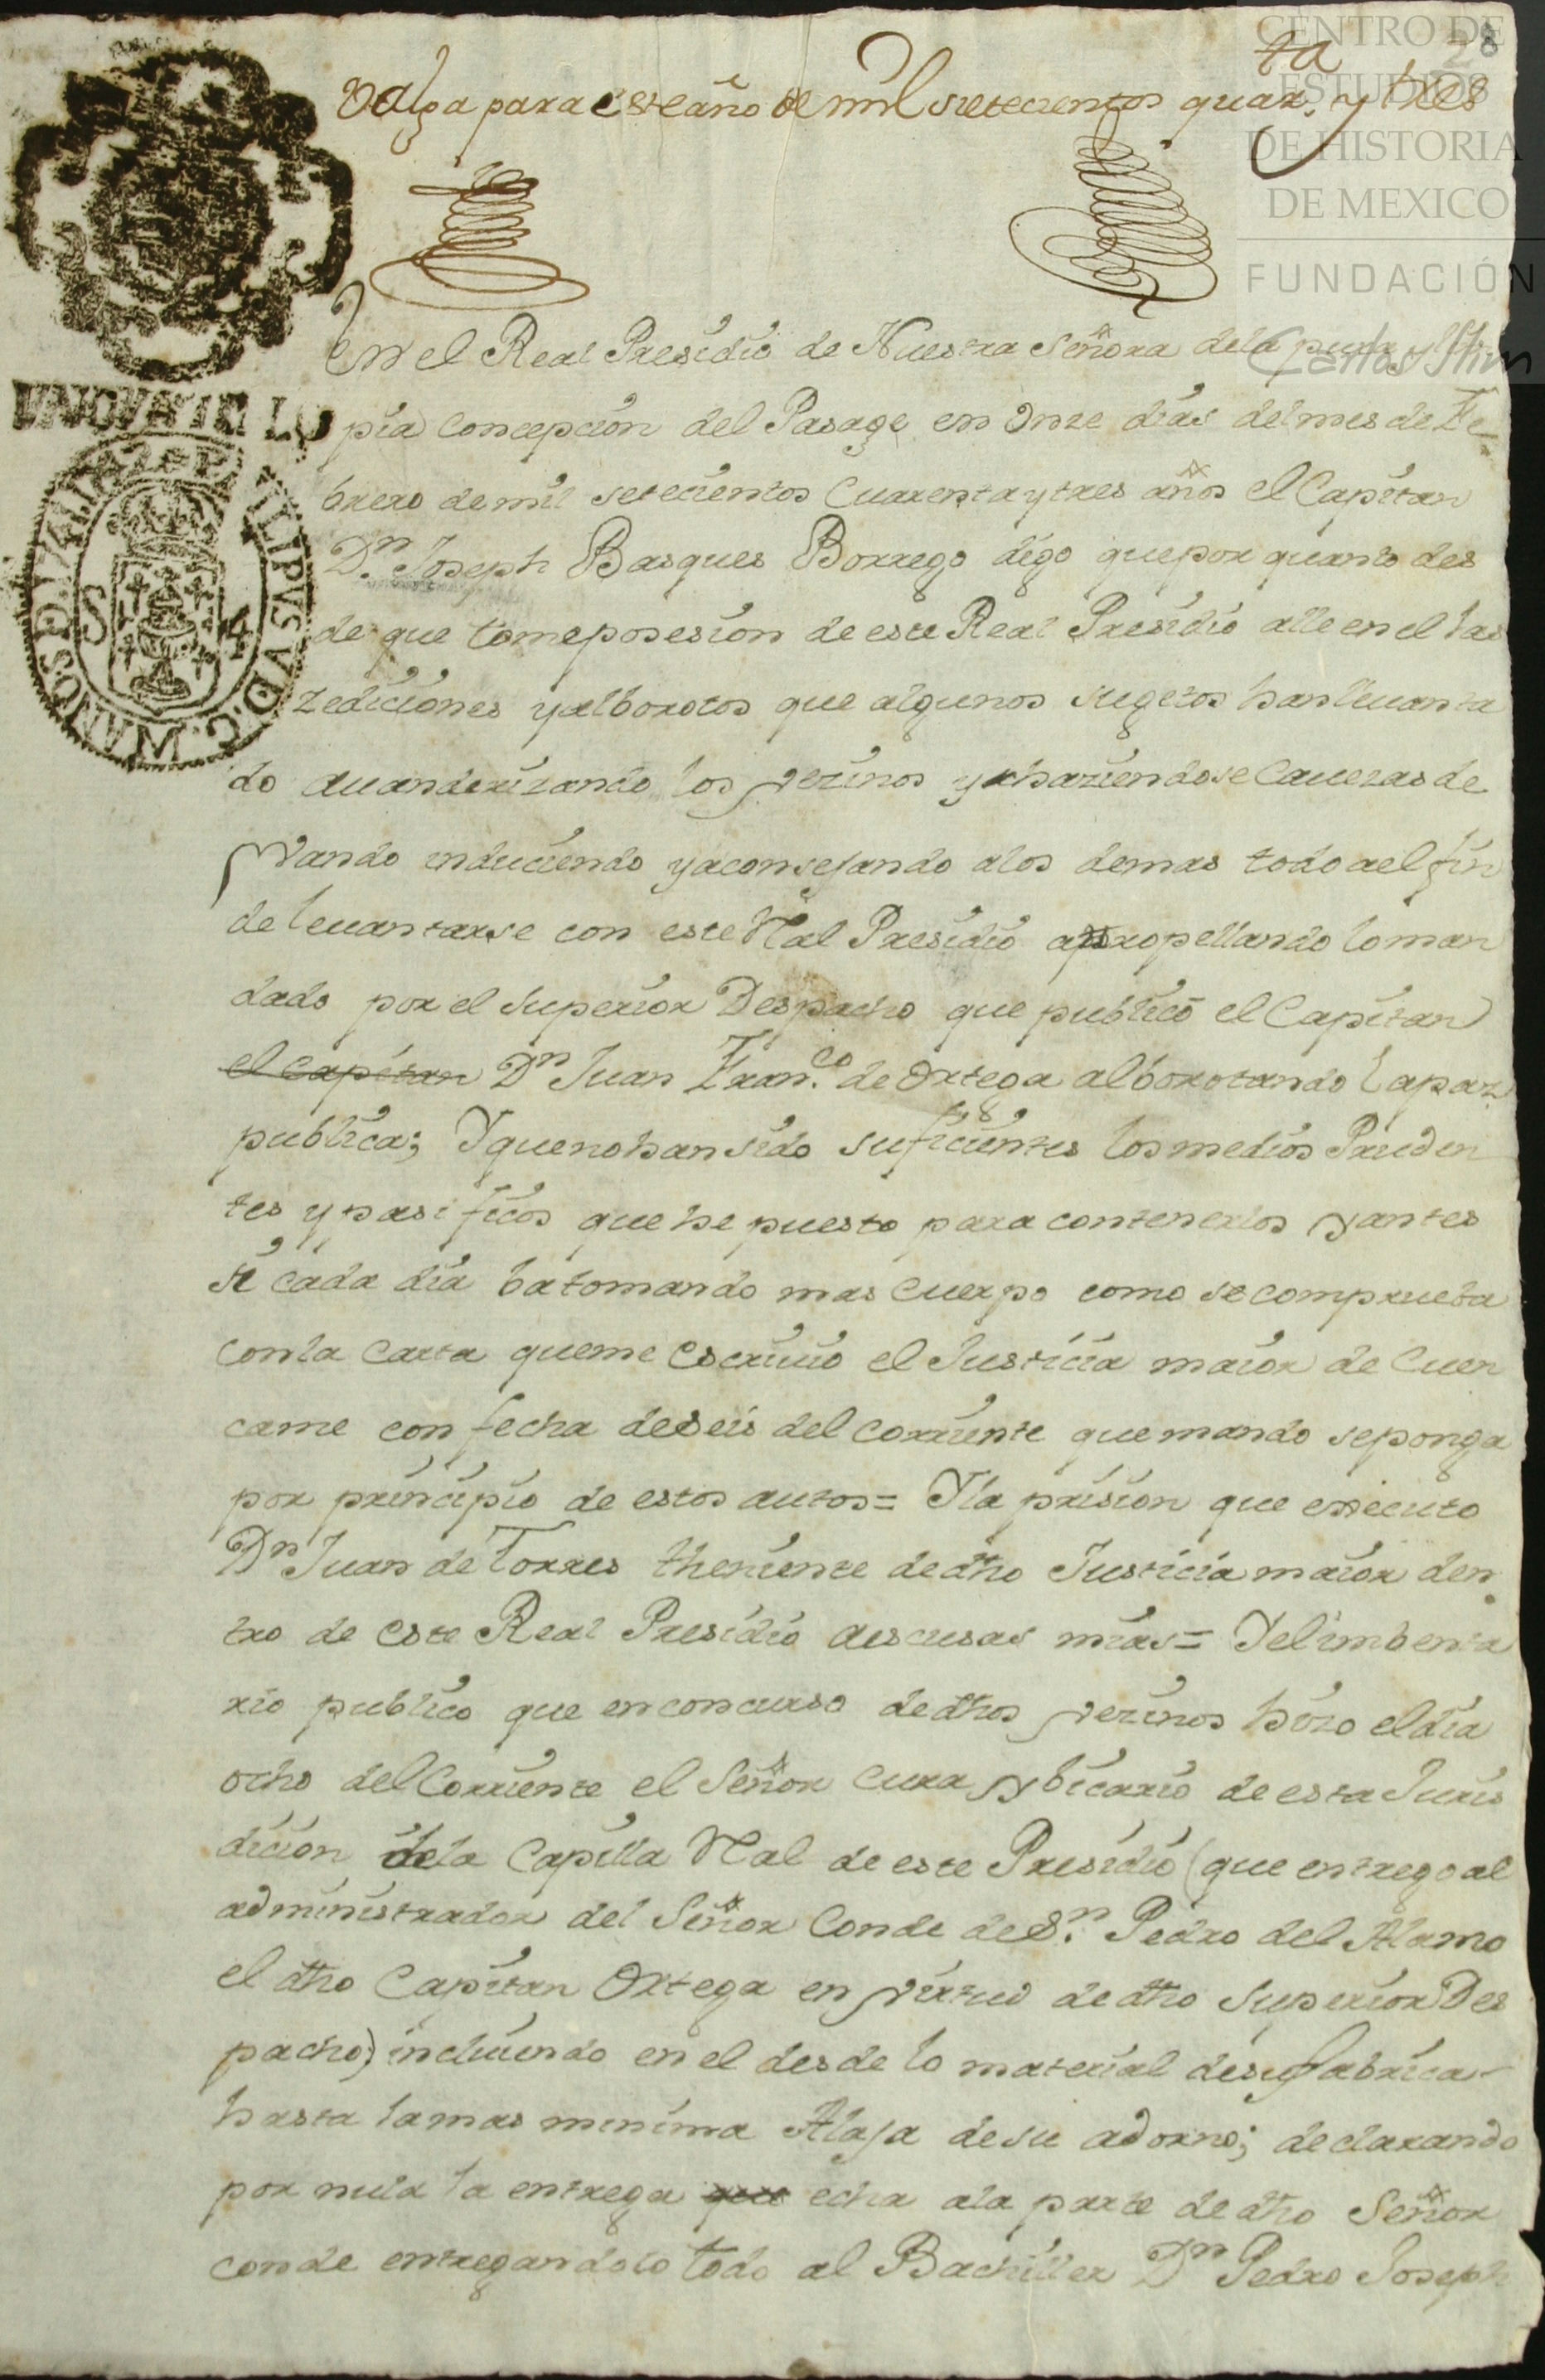 28
CENTRO DE
ESTUDIOS
DE HISTORIA
DE MEXICO
FUNDACIÓN
Carlos Slim
Valga para este año de mil setecientos quar.ta y tres
En el Real Presidio de Nuestra Señora de la pura y lim
pia Concepcion del Pasage en Onze dias del mes de Fe
brero de mil setecientos Cuarenta y tres años el Capitan
Dn. Joseph Basques Borrego digo que por quanto des
de que tome posesion de este Real Presidio alle en el las
zediciones y alborotos que algunos sugetos han lleuanta
do auanderizando los vezinos y haziendose Cauezas de
vando induciendo y aconsejando a los demas todo a el fin
de leuantarse con este Ral Presidio atropellando lo man
dado por el Superior Despacho que publicó el Capitan
el Capitan Dn Juan Fran.co de Ortega alborotando la paz
publica; Y que no han sido suficientes los medios Pruden
tes y pasificos que he puesto para contenerlos y antes
si cada dia ba tomando mas Cuerpo como se comprueba
con la Carta que me escriuio el Justicia maior de Cuen
came con fecha de seis del Corriente que mando se ponga
por principio de estos autos= Y la prision que executo
Dn Juan de Torres theniente de dho Justicia maior den
tro de este Real Presidio a escusas mias= Y el imbenta
rio publico que en concurso de dhos vezinos hizo el dia
ocho del Corriente el Señor Cura y bicario de esta Juris
dicion de la Capilla Ral de este Presidio (que entrego al
administrador del Señor Conde de Sn. Pedro del Alamo
el dho Capitan Ortega en virtud de dho Superior Des
pacho) incluiendo en el desde lo material de su fabrica
hasta la mas minima Alaja de su adorno; declarando
por nula la entrega que echa a la parte de dho Señor
conde entregandolo todo al Bachiller Dn Pedro Joseph